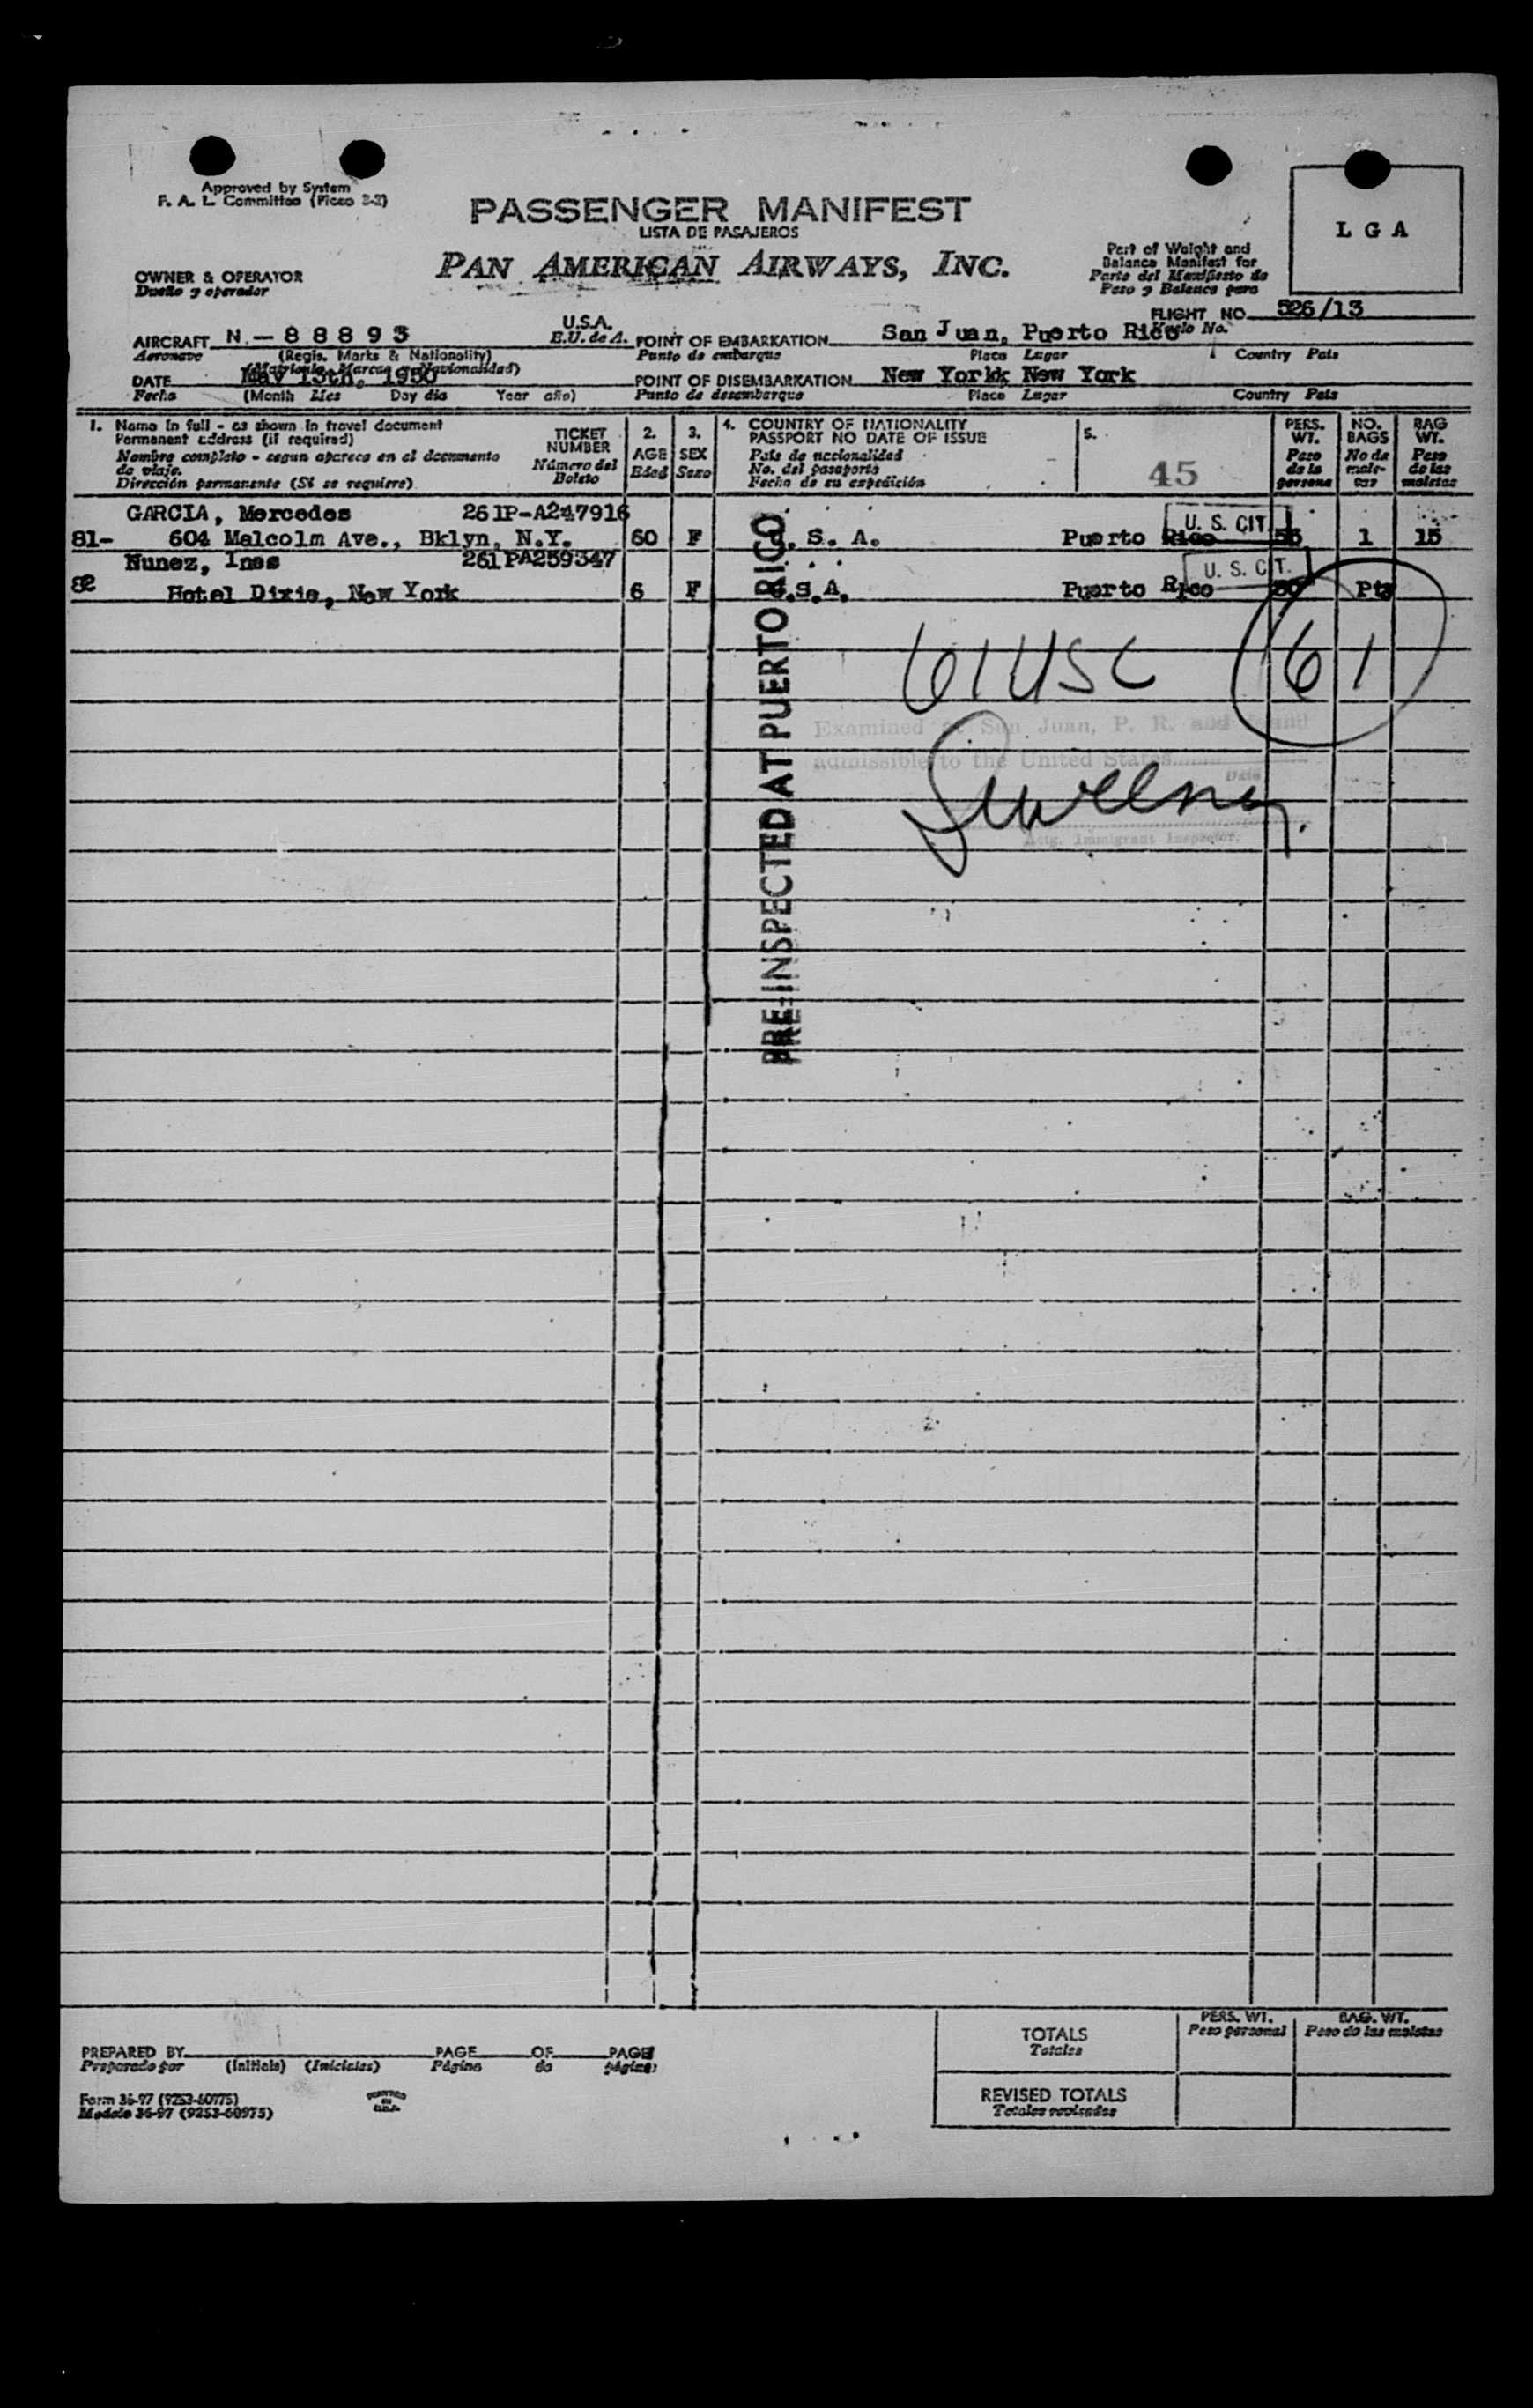 Approved by System
F. A. L. Committee (Picao 3-2)
PASSENGER MANIFEST
LISTA DE PASAJEROS
PAN AMERICAN AIRWAYS, INC.
LGA
Part of Weight and
Balance Manifest for
Parte del Manifiesto de
Peso y Balance para
OWNER & OPERATOR
Dueño y operador
FLIGHT NO. 526/13
Vuelo No.
AIRCRAFT N.-88893 U.S.A. POINT OF EMBARKATION San Juan, Puerto Rico
E.U. de A.
Aeronave (Regis. Marks & Nationality) Punto de embarque Place Lugar Country Pais
(Matricula, Marcas y Nacionalidad)
DATE May 13th, 1950 POINT OF DISEMBARKATION New York New York
Fecha (Month Mes Day dia Year año) Punto de desembarque Place Lugar Country Pais
1. Name in full - as shown in travel document
Permanent address (if required)
Nombre completo - segun aparece en el documento
de viaje.
Dirección permanente (Si se requiere)
TICKET
NUMBER
Número del
Boleto
2.
AGE
Edad
3.
SEX
Sexo
4. COUNTRY OF NATIONALITY
PASSPORT NO DATE OF ISSUE
Pais de nacionalidad
No. del pasaporte
Fecha de su expedición
5.
45
PERS.
WT.
Peso
de la
persona
NO.
BAGS
No de
male-
tas
BAG
WT.
Peso
de las
maletas
GARCIA, Mercedes 261P-A247916
U. S. CIT.
81- 604 Malcolm Ave., Bklyn, N.Y. 60 F U. S. A. Puerto Rico 1 15
Nunez, Ines 261PA259347
U. S. CIT.
82 Hotel Dixie, New York 6 F U.S.A. Puerto Rico Pty
61 USC 61
PRE-INSPECTED AT PUERTO RICO
Examined at San Juan, P. R. and found
admissible to the United States
Date
Sweeney
Actg. Immigrant Inspector.
TOTALS
Totales
PERS. WT.
Peso personal
BAG. WT.
Peso de las maletas
REVISED TOTALS
Totales revisados
PREPARED BY PAGE OF PAGES
Preparado por (Initials) (Iniciales) Página de páginas
Form 36-97 (9253-60975)
Modelo 36-97 (9253-60975)